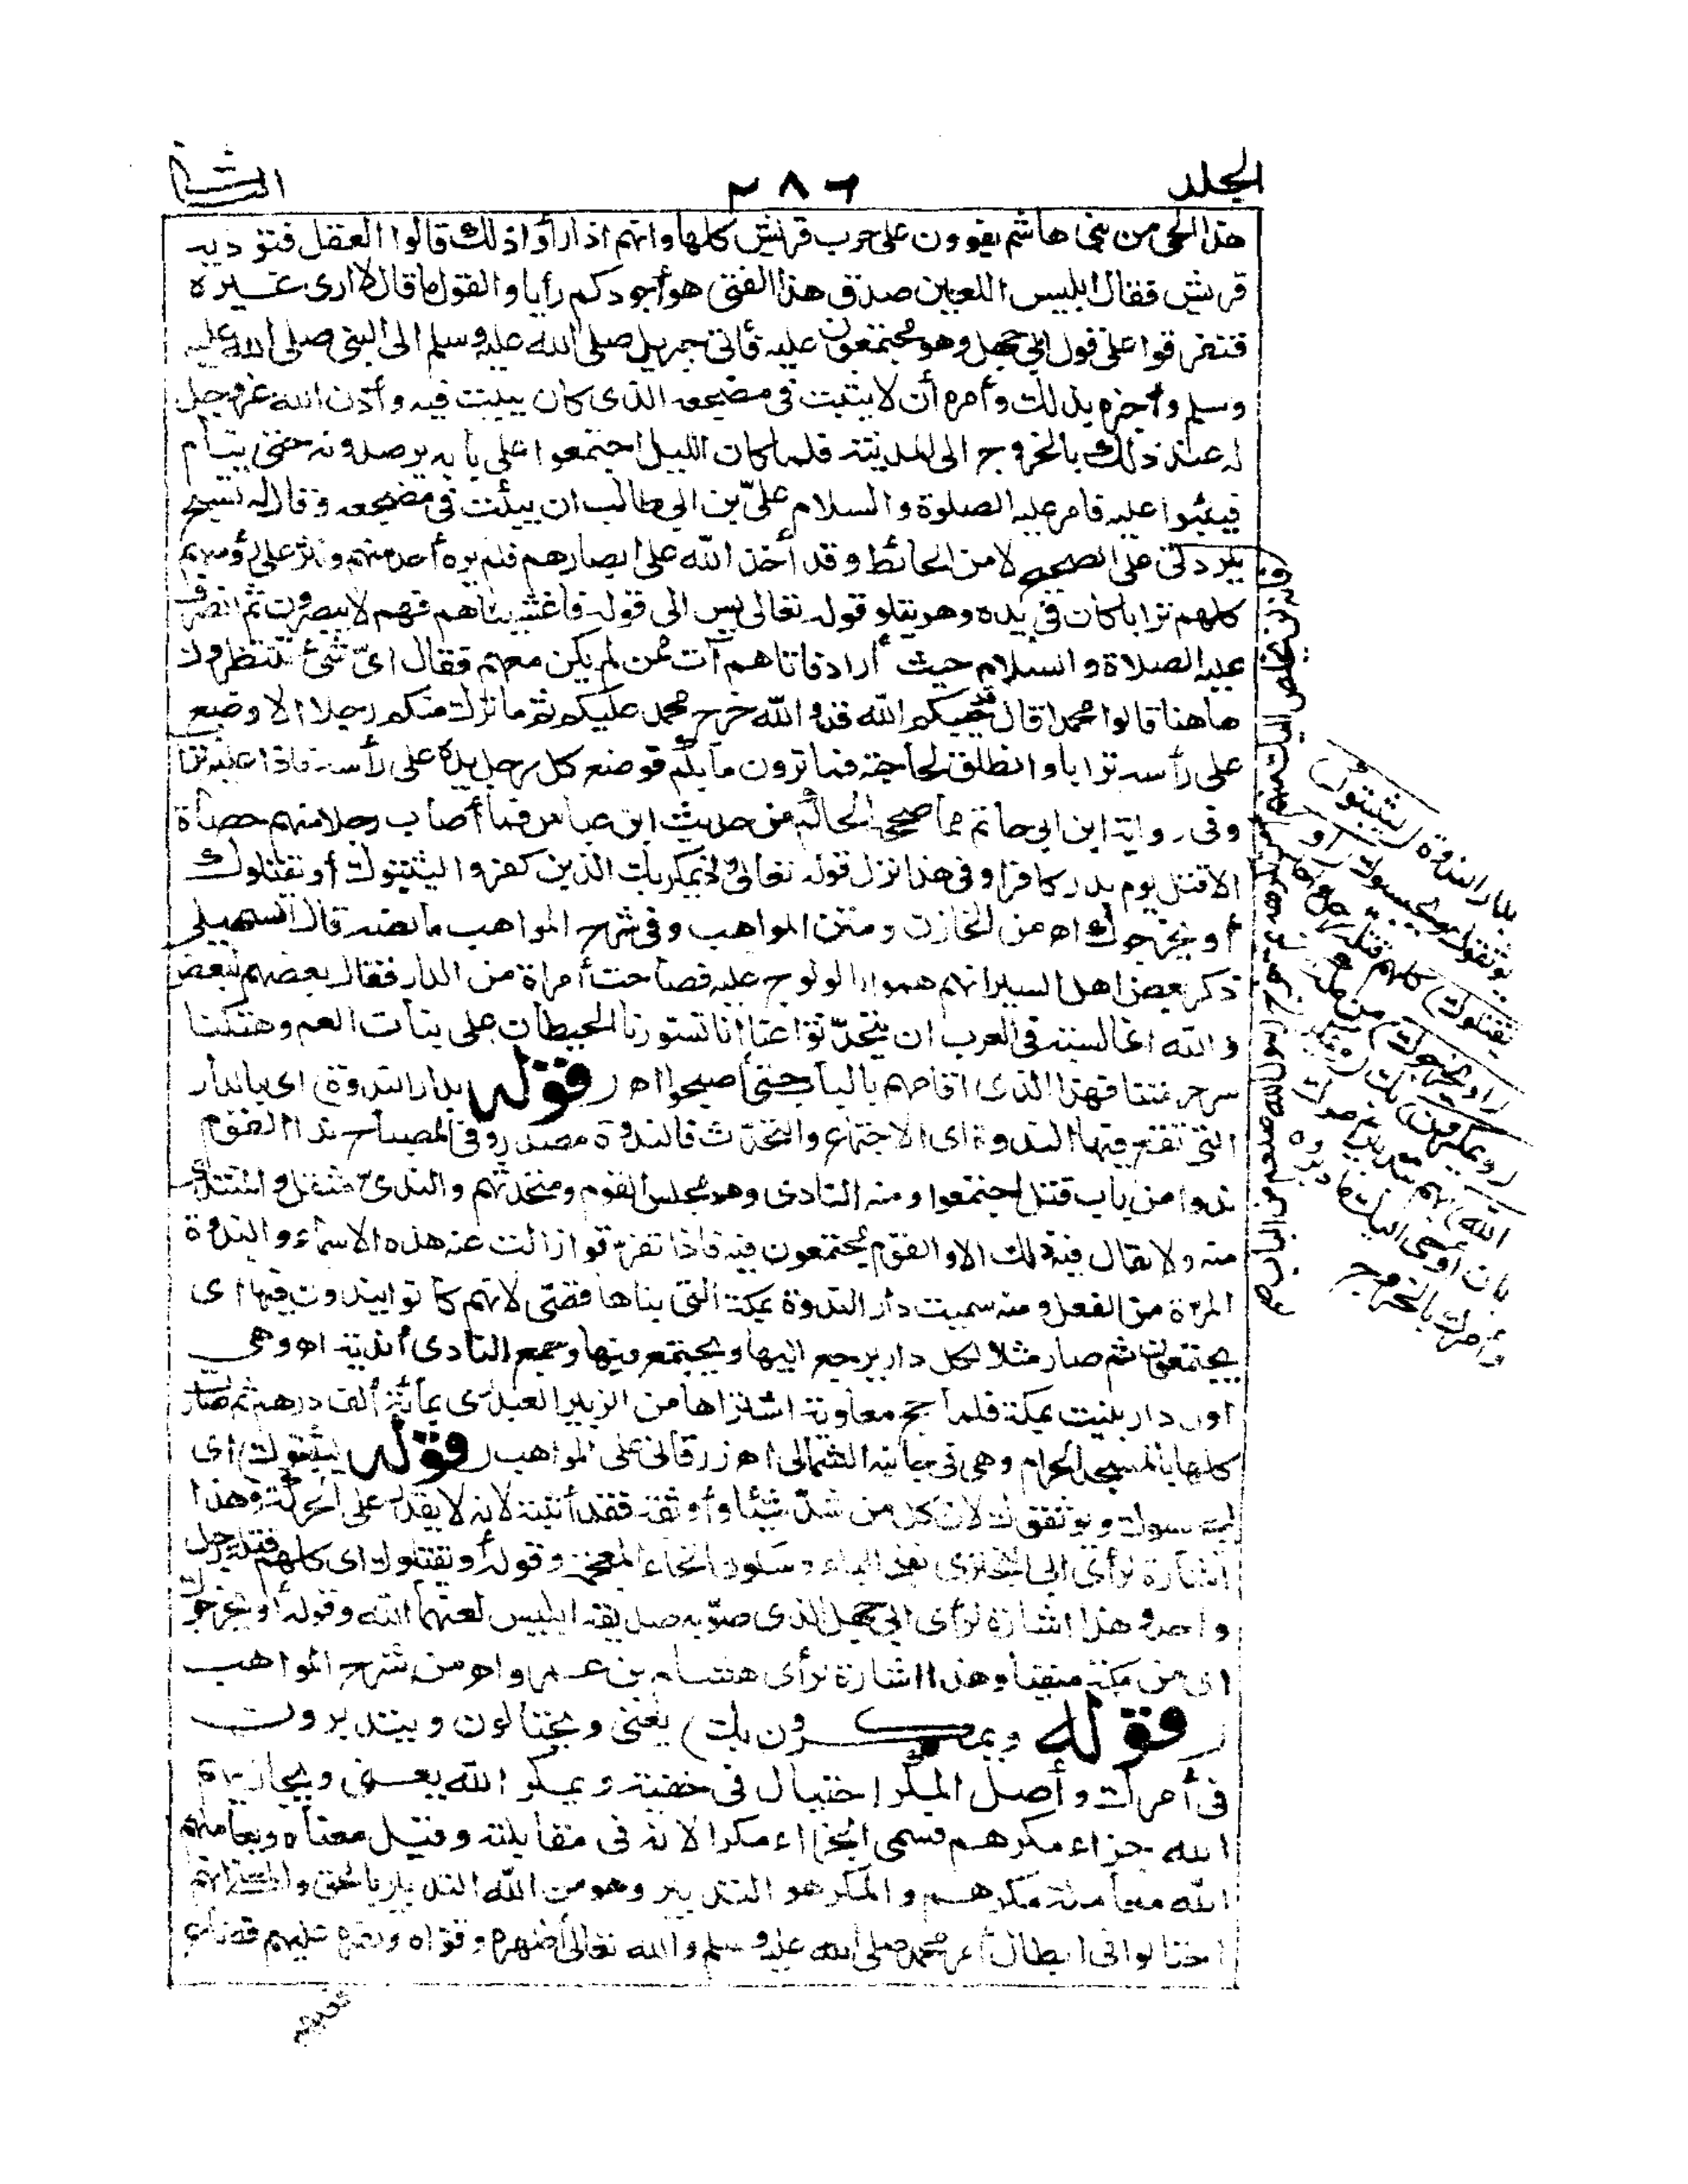 الجلد
٢٨٦
الثانى
هذا الحى من بنى هاشم يقوون على حرب قريش كلها وانهم اذا رأوا ذلك قالوا العقل فتؤديه
قريش فقال ابليس اللعين صدق هذا الفتى هو أجودكم رأيا والقول ما قال لا ارى غيره
فتفرقوا على قول ابى جهل وهو مجتمعون عليه فأتى جبريل صلى الله عليه وسلم الى النبى صلى الله عليه
وسلم وأخبره بذلك وأمره أن لا يثبت فى مضجعه الذى كان يبيت فيه وأذن الله عز وجل
له عند ذلك بالخروج الى المدينة فلما كان الليل اجتمعوا على بابه يرصدونه حتى ينام
فيثبوا عليه فامر عليه الصلوة والسلام علىّ بن ابى طالب ان يبيت فى مضجعه وقال له تسبح
ببردتى على الصحيح لا من الحائط وقد أخذ الله على ابصارهم فلم يره أحد منهم ونثر على رؤسهم
كلهم ترابا كان فى يده وهو يتلو قوله تعالى يس الى قوله فاغشيناهم فهم لا يبصرون ثم انصرف
عليه الصلاة والسلام حيث أراد فاتاهم آت ممن لم يكن معهم فقال اىّ شئ تنتظرون
هاهنا قالوا محمدا قال قد خيبكم الله قد والله خرج محمد عليكم ثم ما ترك منكم رجلا الا وضع
على رأسه ترابا وانطلق لحاجته فما ترون ما بكم فوضع كل رجل يده على رأسه فاذا عليه تراب
وفى رواية ابن ابى حاتم مما صححه الحاكم من حديث ابن عباس فما أصاب رجلا منهم حصاة
الا قتل يوم بدر كافرا وفى هذا نزل قوله تعالى واذ يمكر بك الذين كفروا ليثبتوك أو يقتلوك
أو يخرجوك اه من الخازن ومتن المواهب وفى شرح المواهب ما نصه قال السهيلى
ذكر بعض اهل السير انهم هموا بالولوج عليه فصاحت أمراة من الدار فقال بعضهم لبعض
والله انها لسبة فى العرب ان يتحدّثوا عنا انا تسورنا الحيطان على بنات العم وهتكنا
ستر حرمتنا فهذا الذى اقامهم بالباب حتى أصبحوا اه (قوله بدار الندوة) اى بالدار
التى تقع فيها الندوة اى الاجتماع والتحدّث فالندوة مصدر وفى المصباح ندا القوم
ندوا من باب قتل اجتمعوا ومنه النادى وهو مجلس القوم ومتحدثهم والندىّ مثقل والمنتدى
منه ولا يقال فيه ذلك الا والقوم مجتمعون فيه فاذا تفرّقوا زالت عنه هذه الاسماء والندوة
المرّة من الفعل ومنه سميت دار الندوة بمكة التى بناها قصىّ لانهم كانوا يندون فيها اى
يجتمعون ثم صار مثلا لكل دار يرجع اليها ويجتمع فيها وجمع النادى أندية اه وهى
اول دار بنيت بمكة فلما حج معاوية اشتراها من الزبير العبدرى بمائة ألف درهم ثم صارت
كلها بالمسجد الحرام وهى فى جانبه الشمالى اه زرقانى على المواهب (قوله ليثبتوك) اى
ليحبسوك ويوثقوك لان كل من شدّ شيئا وأوثقه فقد أثبته لانه لا يقدر على الحركة وهذا
اشارة لرأى ابى البخترى بفتح الباء وسكون الخاء المعجمة وقوله أو يقتلوك اى كلهم قتلة رجل
واحد وهذا اشارة لرأى ابى جهل الذى صوّبه صديقه ابليس لعنهما الله وقوله أو يخرجوك
اى من مكة منفيا وهذا اشارة لرأى هشام بن عمرو اه من شرح المواهب
(قوله ويمكرون بك) يعنى ويحتالون ويتدبرون
فى أمرك وأصل المكر احتيال فى خفية ويمكر الله يعنى ويجازيهم
الله جزاء مكرهم فسمى الجزاء مكرا لانه فى مقابلته وقيل معناه ويعاملهم
الله معاملة مكرهم والمكر هو التدبير وهو من الله التدبير بالحق والمعنى انهم
احتالوا فى ابطال أمر محمد صلى الله عليه وسلم والله تعالى أظهره وقوّاه ونصره عليهم فضاع
بدار الندوة (ليثبتوك)
يوثقوك ويحبسوك (أو
يقتلوك) كلهم قتلة رجل واحد
(أو يخرجوك) من مكة
(ويمكرون) بك (ويمكر
الله) بهم بتدبير أمرك
بان أوحى اليك ما دبروه
وأمرك بالخروج